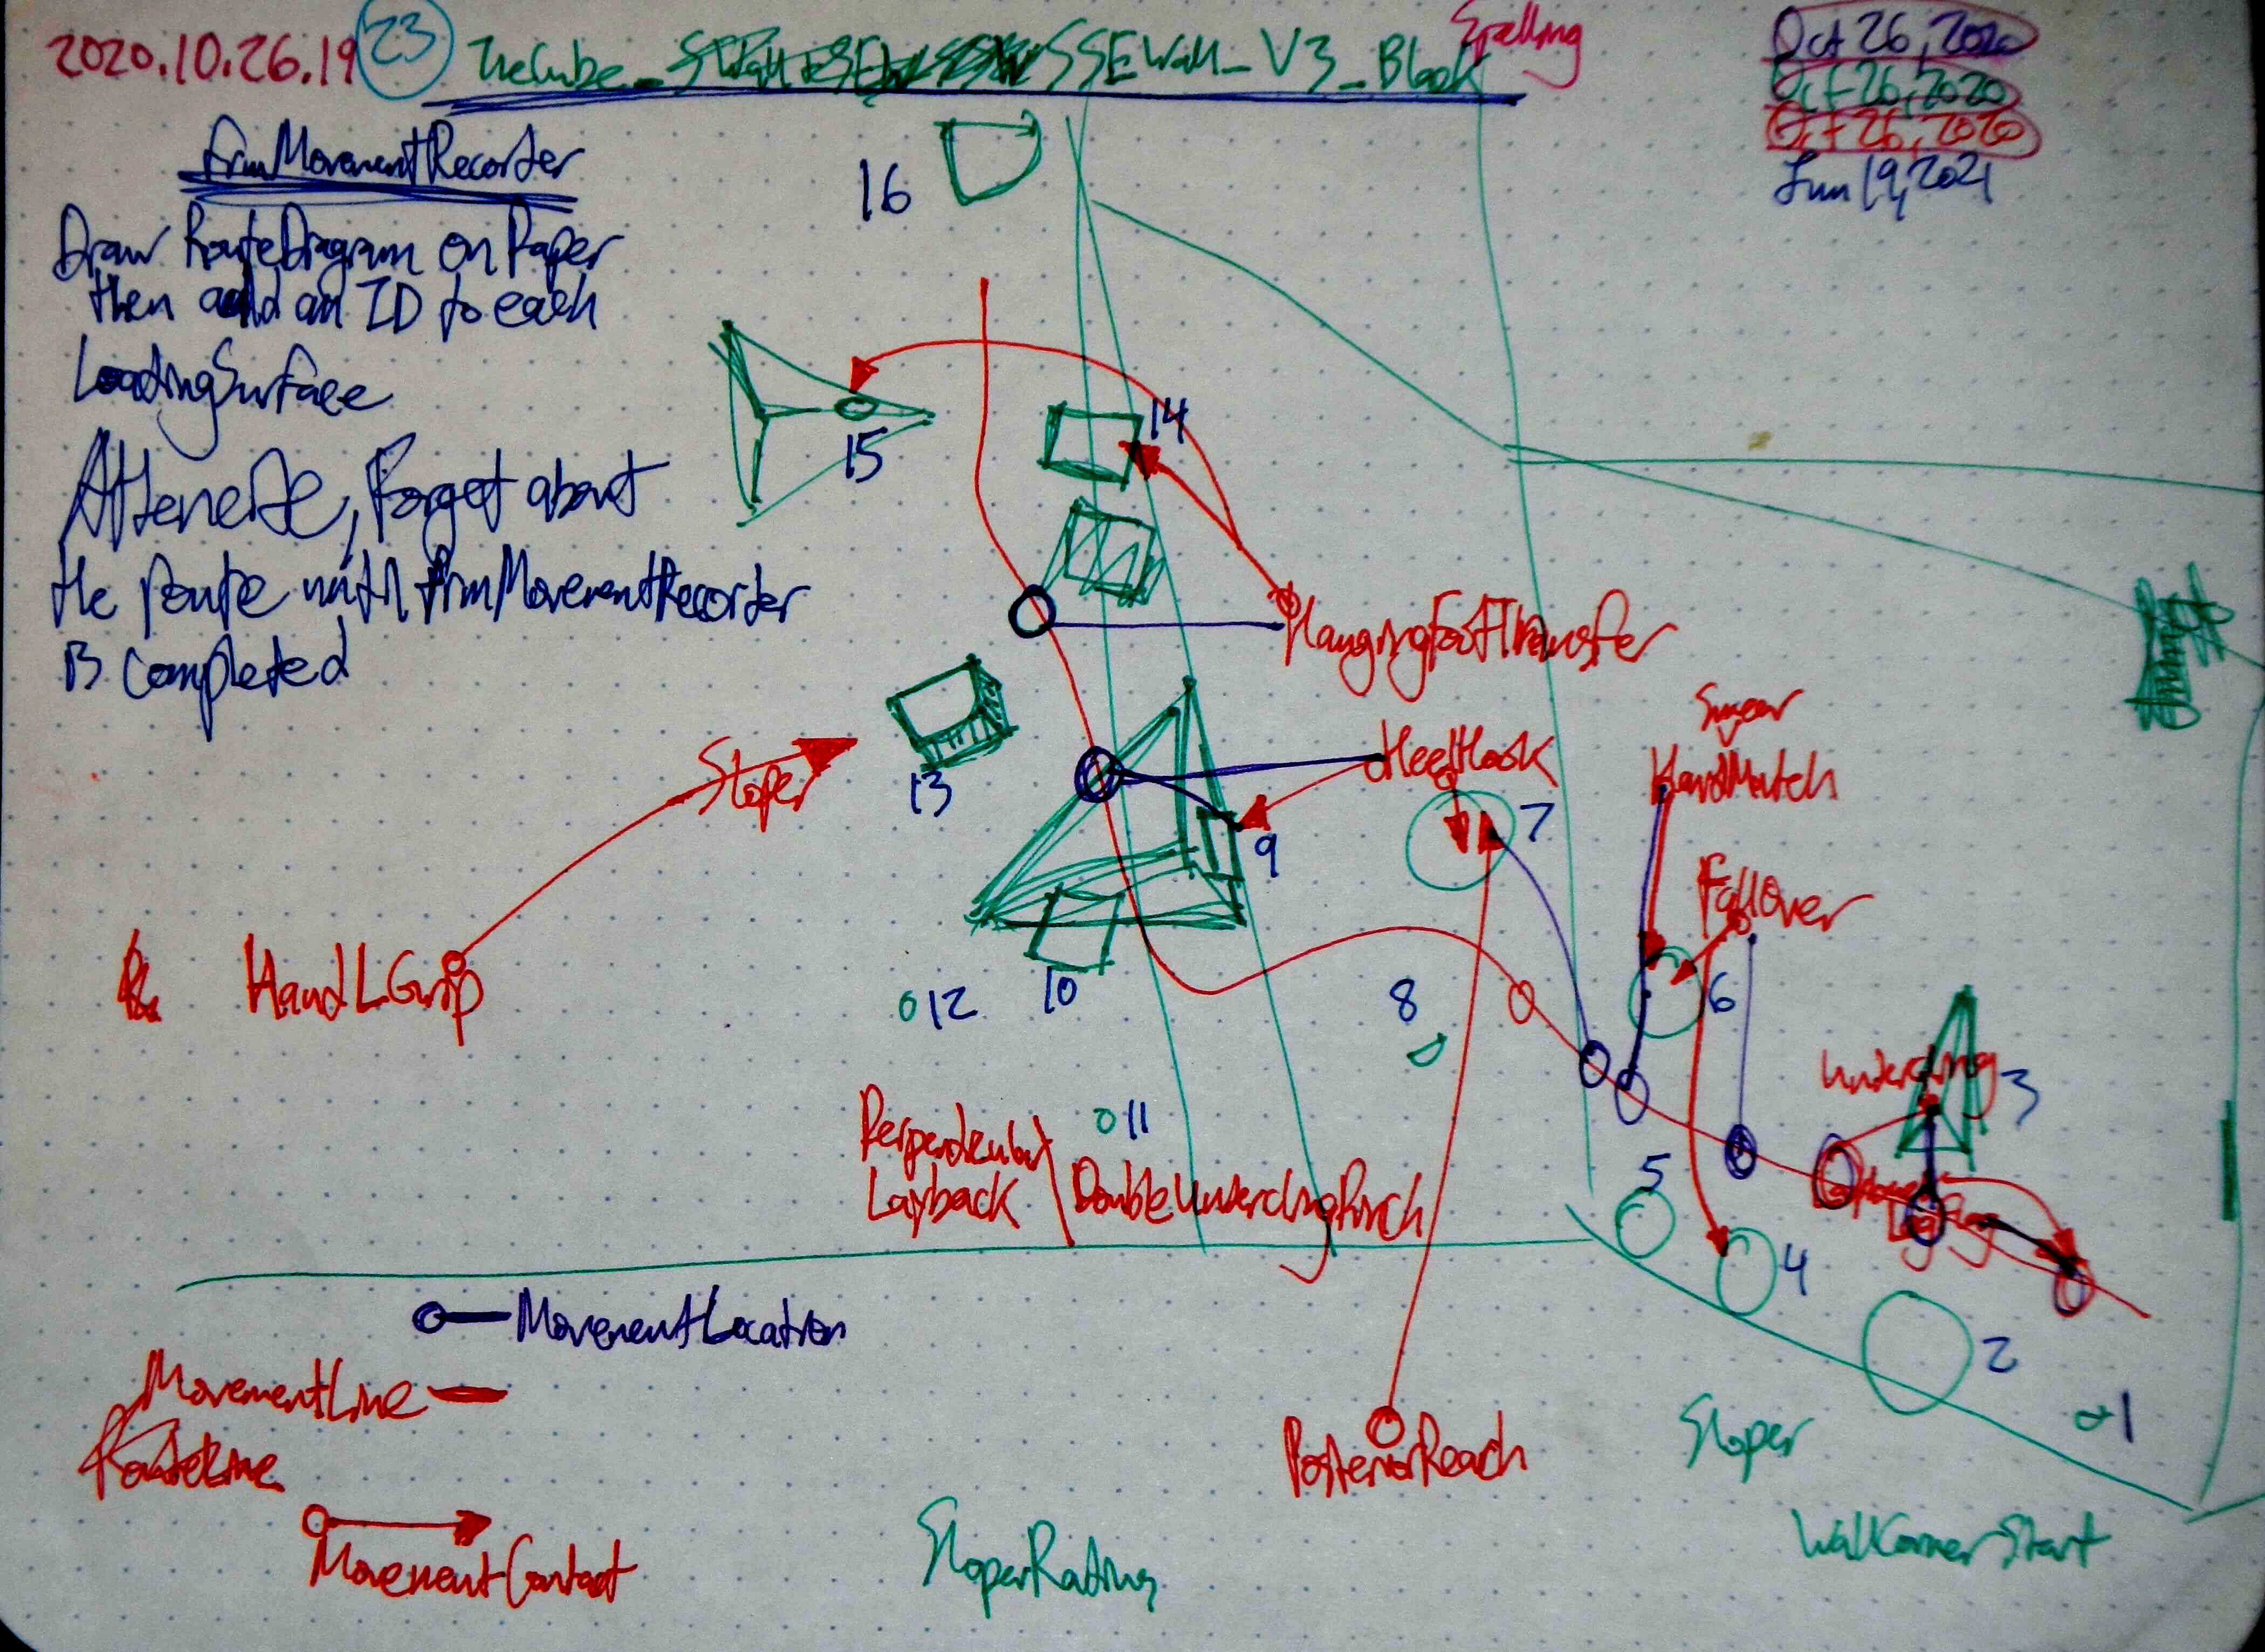 2020.10.26.19 23 TheCube_ SSEWall_V3_Black
Spelling
Oct 26, 2020
Oct 26, 2020
Oct 26, 2020
Jun 19, 2021
frmMovementRecorder
Draw RouteDiagram on Paper
then add an ID to each
LoadingSurface
Forget about
the route until frmMovementRecorder
is completed
16
14
15
HangingFootTransfer
Smear
HandMatch
HeelHook
Sloper
13
7
9
FallOver
HandLGrip
12
10
8
6
Undercling
3
11
Layback
DoubleUnderclingPinch
5
4
2
1
MovementLocation
MovementLine
RouteLine
MovementContact
PosteriorReach
Sloper
SloperRating
WallCornerStart